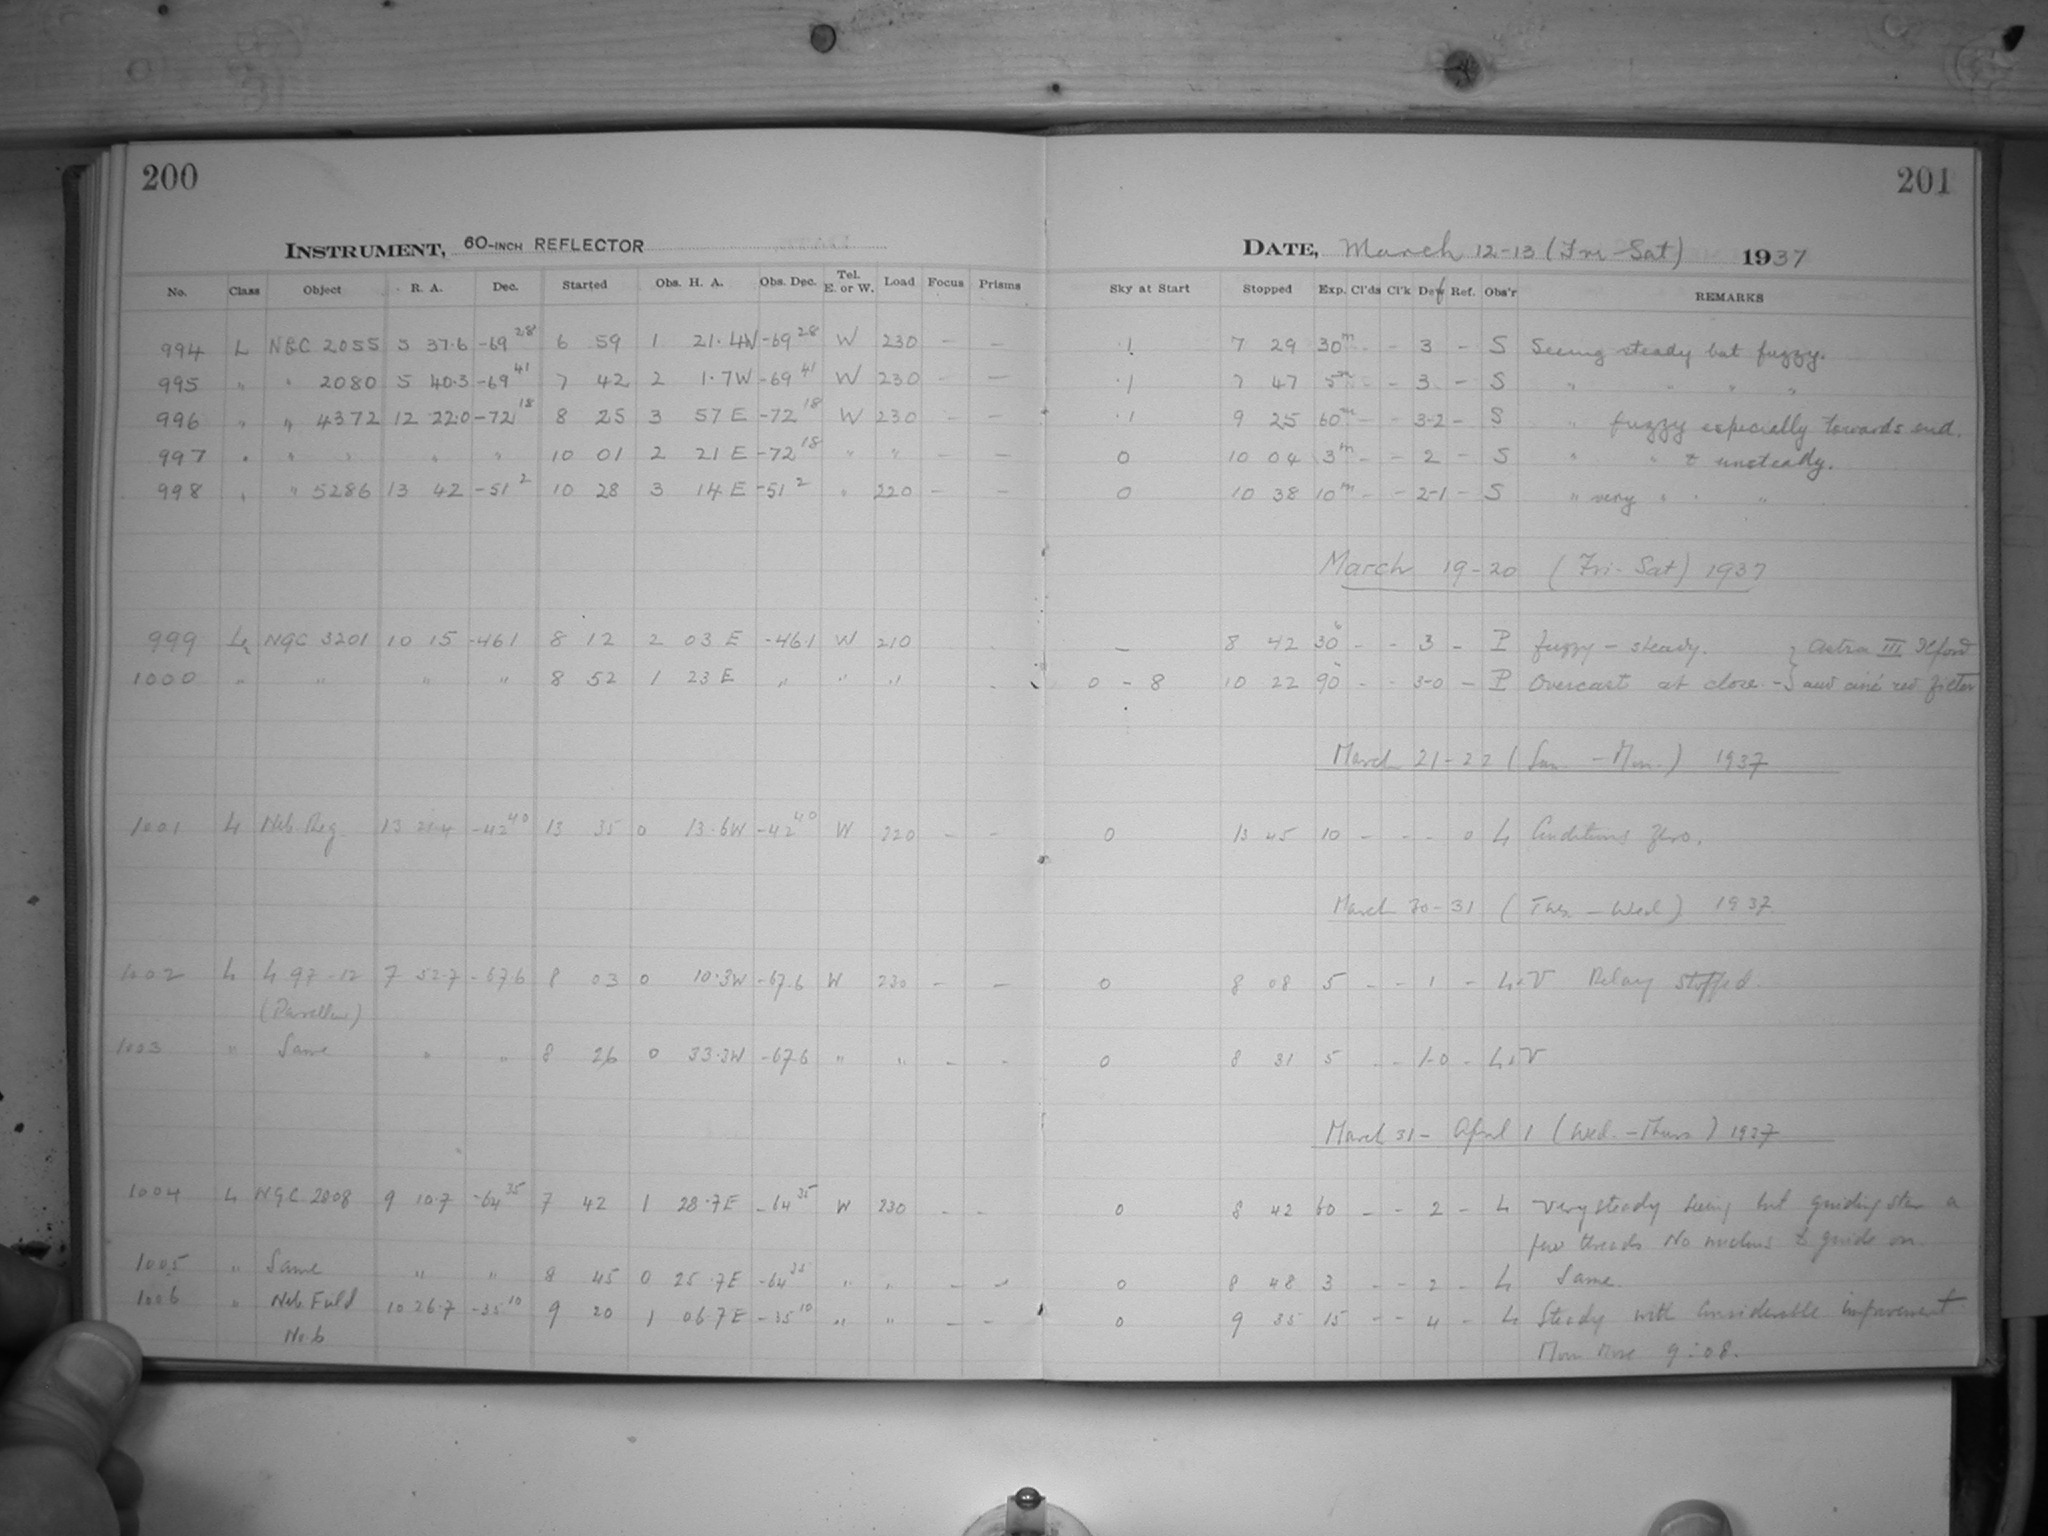 200
201
INSTRUMENT, 60-INCH REFLECTOR
DATE, March 12-13 (Fri-Sat) 1937
No. Class Object R. A. Dec. Started Obs. H. A. Obs. Dec. Tel. E. or W. Load Focus Prisms Sky at Start Stopped Exp. Cl'ds Cl'k Def Ref. Obs'r REMARKS
994 L NGC 2055 5 37.6 -69 28 6 59 1 21.4W -69 28 W 230 - - .1 7 29 30m - - 3 - S Seeing steady but fuzzy.
995 " " 2080 5 40.3 -69 41 7 42 2 1.7W -69 41 W 230 - - .1 7 47 5m - - 3 - S " " " "
996 " " 4372 12 22.0 -72 18 8 25 3 57 E -72 18 W 230 - - .1 9 25 60m - - 3-2 - S " fuzzy especially towards end.
997 " " " " " 10 01 2 21 E -72 18 " " - - 0 10 04 3m - - 2 - S " " & unsteady.
998 " " 5286 13 42 -51 2 10 28 3 14 E -51 2 " 220 - - 0 10 38 10m - - 2-1 - S " very " " "
March 19-20 (Fri-Sat) 1937
999 L NGC 3201 10 15 -46.1 8 12 2 03 E -46.1 W 210 - 8 42 30 - - 3 - P fuzzy - steady. } Astra III Ilford
1000 " " " " 8 52 1 23 E " " " 0 - 8 10 22 90 - - 3-0 - P Overcast at close - } and ciné red filter
March 21-22 (Sun. - Mon.) 1937
1001 L Neb. Reg. 13 -42 40 13 35 0 13.6W -42 40 W 220 - - 0 13 45 10 - - - 0 L Conditions Zero.
March 30-31 (Tues. - Wed) 1937
1002 L L 97-12 7 52.7 -67.6 8 03 0 10.3W -67.6 W 230 - - 0 8 08 5 - - 1 - L&V Relay stopped.
(Parallax)
1003 " Same " " 8 26 0 33.3W -67.6 " " - - 0 8 31 5 - - 1-0 - L&V
March 31 - April 1 (Wed. - Thurs) 1937
1004 L NGC 2808 9 10.7 -64 35 7 42 1 28.7E -64 35 W 230 - - 0 8 42 60 - - 2 - L Very steady seeing but guiding star a
few threads No nucleus to guide on
1005 " Same " " 8 45 0 25.7E -64 35 " " - - 0 8 48 3 - - 2 - L Same.
1006 " Neb. Field 10 26.7 -35 10 9 20 1 06.7E -35 10 " " - - 0 9 35 15 - - 4 - L Steady with considerable improvement
No 6 Moon rose 9:08.